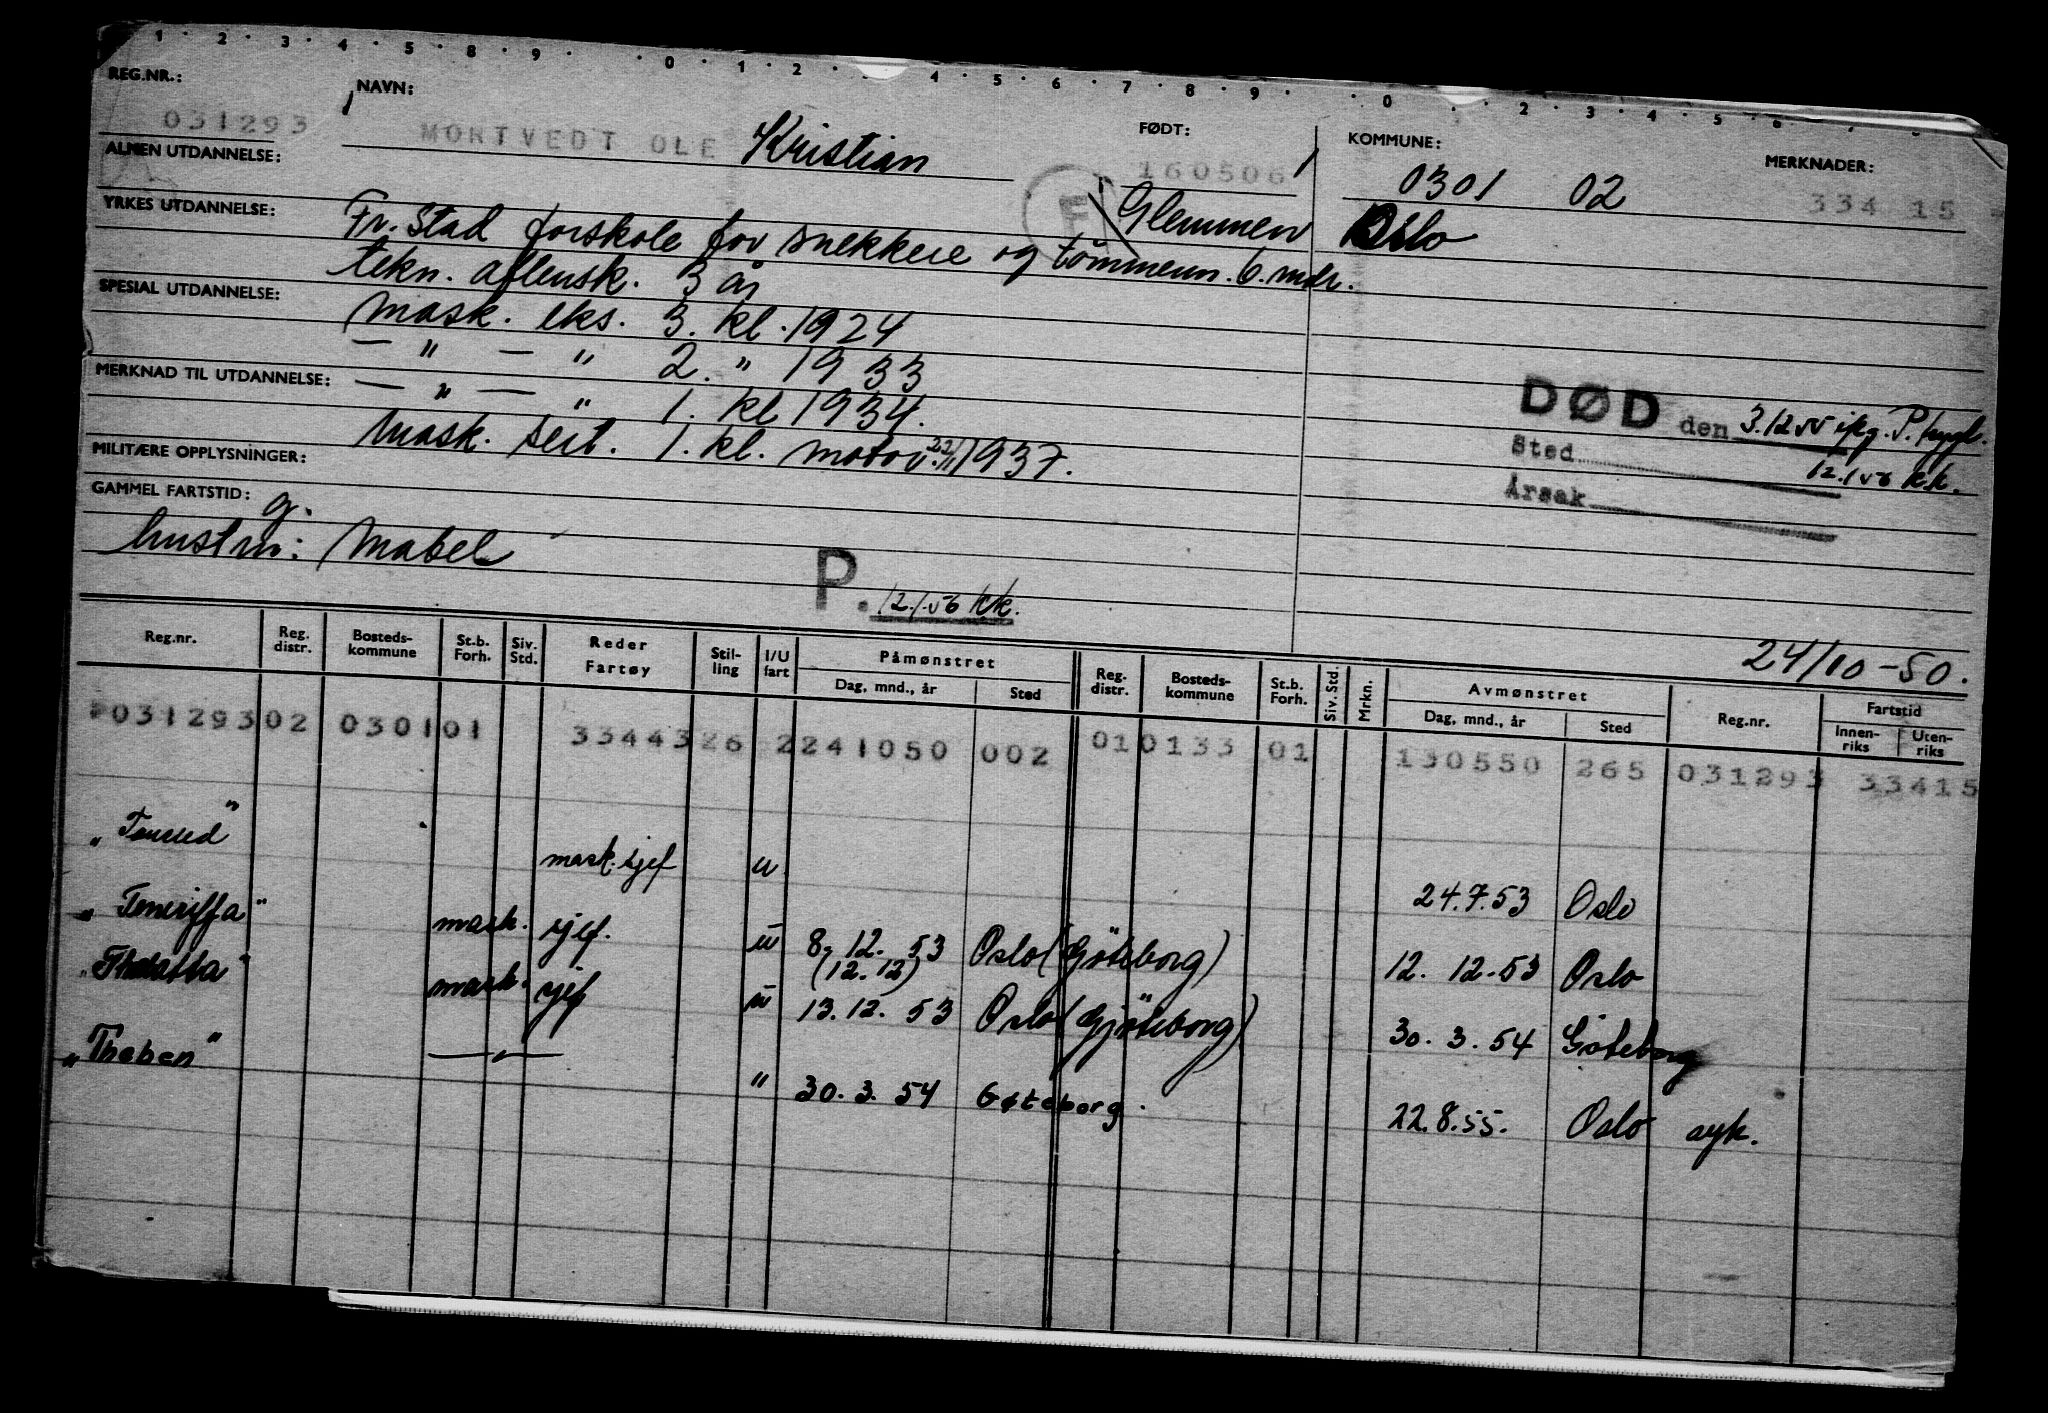 1 · 2 · 3 · 4 · 5 · 8 · 9 · · 0 · 1 · 2 · · 4 · 5 · 6 · 7 · 8 · 9 · · 0 · · 2 · 3 · 4 · 5 · 6
REG.NR.: NAVN: FØDT: KOMMUNE: MERKNADER:
031293 MORTVEDT OLE Kristian 160506 0301 02 334 15
ALMEN UTDANNELSE: Glemmen Oslo
YRKES UTDANNELSE: Fr. Stad forskole for snekkere og tømmerm. 6. mdr.
tekn. aftensk. 3 år
SPESIAL UTDANNELSE: Mask. eks. 3. kl. 1924
— " — " 2. " 1933
MERKNAD TIL UTDANNELSE: — " — " 1. kl 1934.
Mask. sert. 1. kl. motor 22/11 1937.
DØD den 3.12 55 ifg. P. bygl.
Sted 12.1 56 kk.
Årsak
MILITÆRE OPPLYSNINGER:
GAMMEL FARTSTID:
g.
hustru: Mabel
P. 12.1.56 kk.
24/10-50.
Reg.nr. Reg. distr. Bosteds-kommune St.b. Forh. Siv. Std. Reder Fartøy Stil-ling I/U fart Påmønstret Reg. distr. Bosteds-kommune St.b. Forh. Siv. Std. Mrkn. Avmønstret Reg.nr. Fartstid
Dag, mnd., år Sted Dag, mnd., år Sted Innen-riks Uten-riks
031293 02 0301 01 33443 26 2 241050 002 01 0133 01 130550 265 031293 33415
mask. sjef u 24.7.53 Oslo
"Teneriffa" mask. sjef. u 8. 12. 53 Oslo (Gøteborg) 12. 12.53 Oslo
(12.12)
"Thalatta" mask. sjef u 13.12. 53 Oslo (Gjøteborg) 30. 3. 54 Gøteborg
"Theben" — " — " 30. 3. 54 Gøteborg. 22.8.55. Oslo syk.